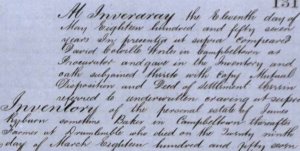 131
At Inveraray the Eleventh day of
May Eighteen hundred and fifty seven
years In presence ut supra Compeared
David Colville Writer in Campbeltown as
Procurator and gave in the Inventory and
oath subjoined thereto with Copy Mutual
Disposition and Deed of Settlement therein
referred to underwritten craving ut supra
Inventory of the personal estate of James
Ryburn sometime Baker in Campbeltown thereafter
Farmer at Drumlemble who died on the Twenty ninth
day of March Eighteen hundred and fifty